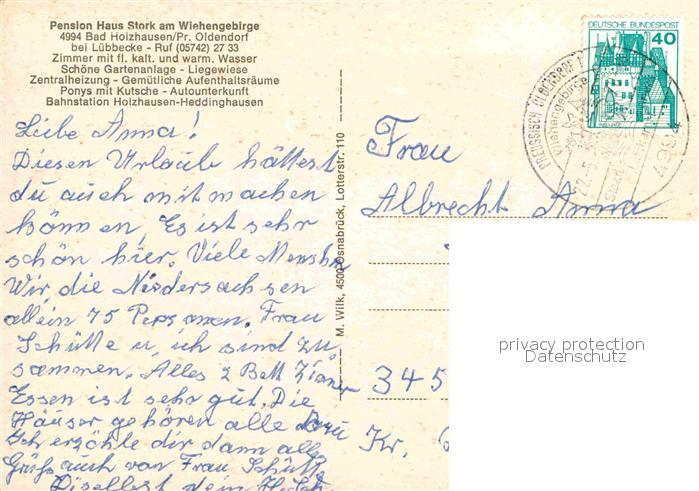 Pension Haus Stork am Wiehengebirge
4994 Bad Holzhausen/Pr. Oldendorf
bei Lübbecke - Ruf (05742) 27 33
Zimmer mit fl. kalt. und warm. Wasser
Schöne Gartenanlage - Liegewiese
Zentralheizung - Gemütliche Aufenthaltsräume
Ponys mit Kutsche - Autounterkunft
Bahnstation Holzhausen-Heddinghausen
Liebe Anna!
Diesen Urlaub hättest
du auch mit machen
können, Es ist sehr
schön hier. Viele Mensche
Wir, die Niedersachsen
allein 75 Personen. Frau
Schütte u, ich sind zu,
sammen. Alles 2 Bett Zimmer
Essen ist sehr gut. Die
Häuser gehören alle dazu
Ich erzähle dir dann alles
Grüß auch von Frau Schütte
M. Wilk, 4500 Osnabrück, Lotterstr. 110
DEUTSCHE BUNDESPOST
40
PREUSSISCH OLDENDORF 1
Wiehengebirge
4994
Frau
Albrecht Anna
345
Kr.
privacy protection
Datenschutz